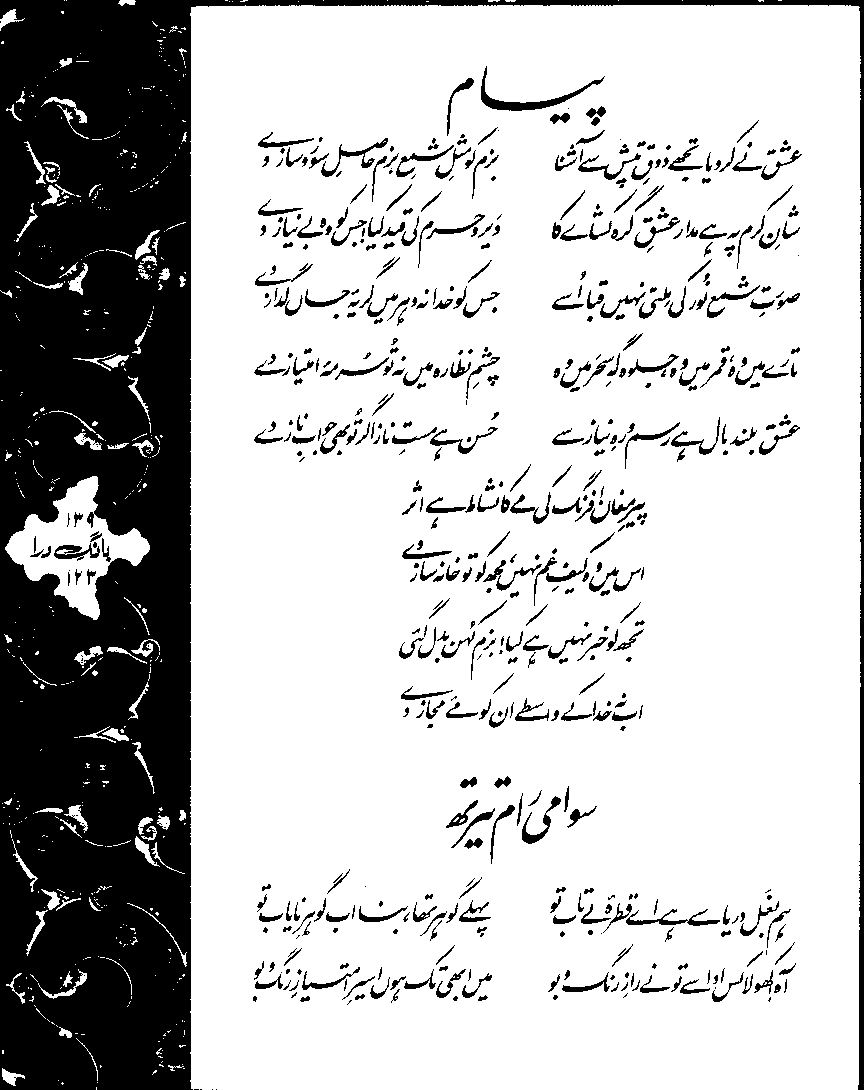 پیام
عشق نے کر دیا تجھے ذوقِ تپش سے آشنا بزم کو مثلِ شمعِ بزم حاصلِ سوز و ساز دے
شانِ کرم پہ ہے مدار عشقِ گرہ کشاے کا دَیر و حرم کی قید کیا! جس کو وہ بے نیاز دے
صورتِ شمع نُور کی مِلتی نہیں قبا اُسے جس کو خدا نہ دہر میں گریۂ جاں گداز دے
تارے میں وہ، قمر میں وہ، جلوہ گہِ سحَر میں وہ چشمِ نظارہ میں نہ تُو سُرمۂ امتیاز دے
عشق بلند بال ہے رسم و رہِ نیاز سے حُسن ہے مستِ ناز اگر تُو بھی جوابِ ناز دے
پیرِ مغاں! فرنگ کی مے کا نشاط ہے اثر
اس میں وہ کیفِ غم نہیں، مجھ کو تو خانہ ساز دے
تجھ کو خبر نہیں ہے کیا! بزمِ کہُن بدل گئی
اب نہ خدا کے واسطے ان کو مۓ مجاز دے
سوامی رام تیرتھ
ہم بغل دریا سے ہے اے قطرۂ بے تاب تو پہلے گوہر تھا، بنا اب گوہرِ نایاب تو
آہ! کھولا کس ادا سے تو نے رازِ رنگ و بو میں ابھی تک ہوں اسیرِ امتیازِ رنگ و بو
۱۳۹
بانگِ درا
۱۲۳